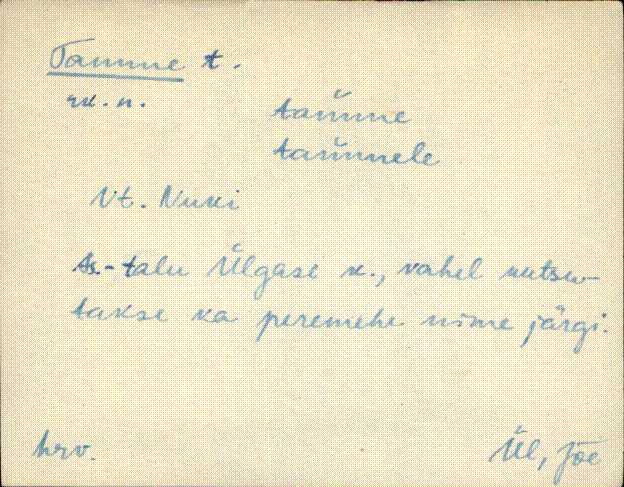 Tamme t.
rk. n.
tam̆me
tam̆mele
Vt. Nuki
As.-talu Ülgase k., vahel kutsu-
takse ka peremehe nime järgi.
hrv.
Ül, Jõe